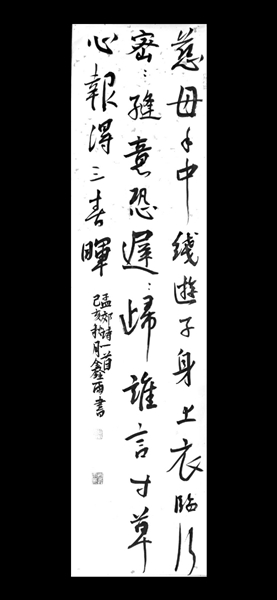 慈母手中綫遊子身上衣臨行
密々縫意恐遲々歸誰言寸草
心報得三春暉
孟郊詩一首
己亥秋月鑫雨書